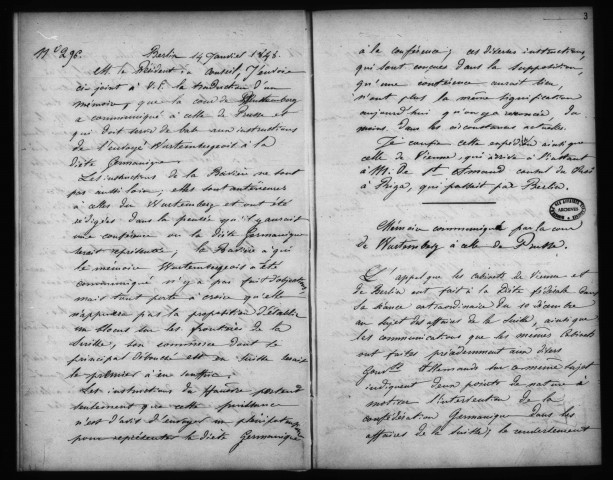 N.° 296.
Berlin 14 Janvier 1848.
M. le Président du Conseil, J'envoie
ci joint à V. E. la traduction d'un
mémoire, que la cour de Wurtemberg
a communiqué à celle de Prusse et
qui doit servir de base aux instructions
de l'envoyé Wurtembergeois à la
Diète Germanique.
Les instructions de la Bavière ne sont
pas aussi loin; elles sont antérieures
à celles du Wurtemberg et ont été
rédigées dans la pensée qu'il y aurait
une conférence où la diète Germanique
serait représentée; la Bavière à qui
le mémoire Wurtembergeois a été
communiqué n'y a pas fait d'objections
mais tout porte à croire qu'elle
n'appuiera pas la proposition d'établir
un blocus sur les frontières de la
Suisse; son commerce dont le
principal débouché est en Suisse serait
le premier à en souffrir.
Les instructions du Hanovre portent
seulement que cette puissance
n'est d'avis d'envoyer un plénipotentiaire
pour représenter la diète Germanique
3
à la conférence; ces diverses instructions,
qui sont conçues dans la supposition,
qu'une conférence aurait lieu,
n'ont plus la même signification
aujourd'hui qu'on y a renoncé, du
moins dans les circonstances actuelles.
Je confie cette expédition ainsi que
celle de Vienne, qui arrive à l'instant
à M. de St Amand consul du Roi
à Riga, qui passait par Berlin.
ARCHIVES
Mémoire communiqué par la cour
de Wurtemberg à celle de Prusse.
L'appel que les cabinets de Vienne et
de Berlin ont fait à la Diète fédérale dans
sa séance extraordinaire du 10 décembre
au sujet des affaires de la Suisse, ainsi que
les communications que les mêmes Cabinets
ont faites précédemment aux divers
Gouvts Allemands sur ce même sujet
indiquent deux points de nature à
motiver l'intervention de la
confédération Germanique dans les
affaires de la Suisse; le renversement